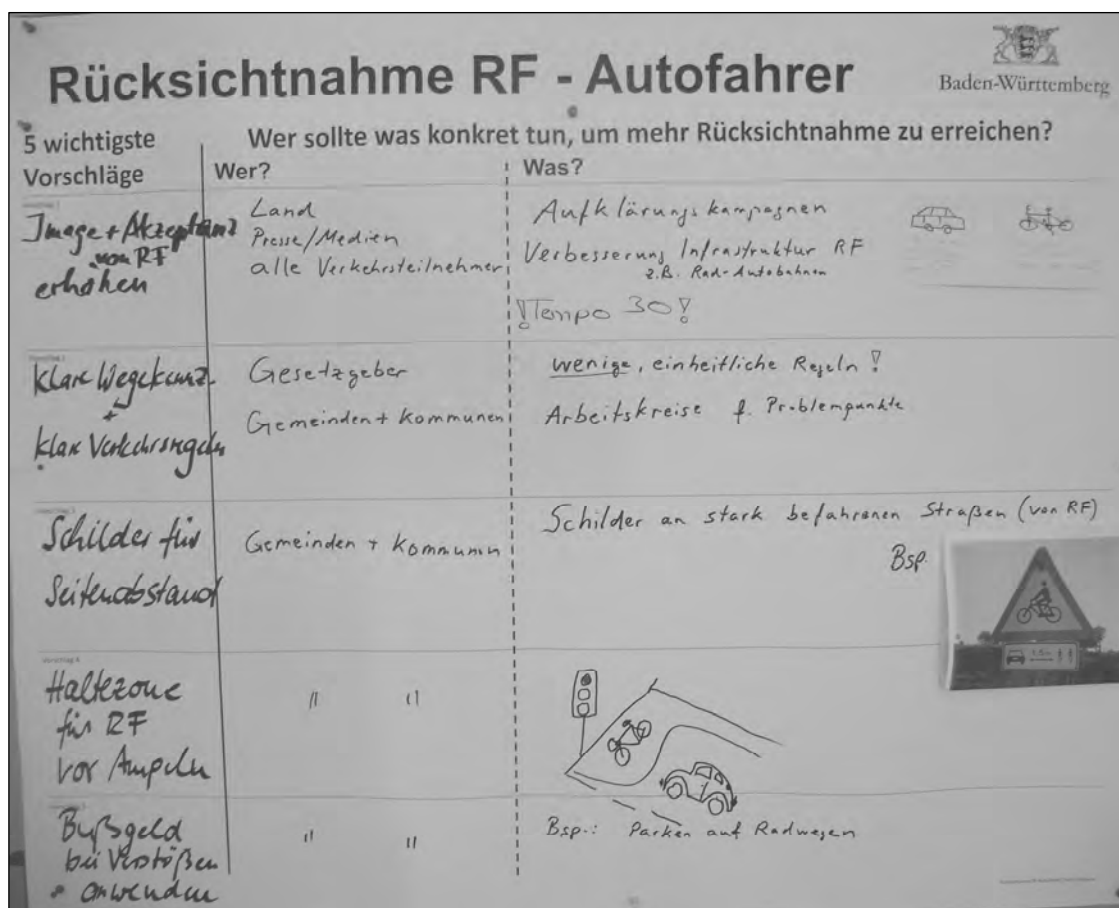 Rücksichtnahme RF - Autofahrer
Baden-Württemberg
5 wichtigste
Vorschläge
Wer sollte was konkret tun, um mehr Rücksichtnahme zu erreichen?
Wer?
Was?
Image + Akzeptanz
von RF
erhöhen
Land
Presse/Medien
alle Verkehrsteilnehmer
Aufklärungskampagnen
Verbesserung Infrastruktur RF
z.B. Rad-Autobahnen
!Tempo 30!
klare Wegekennz.
+
klare Verkehrsregeln
Gesetzgeber
Gemeinden + Kommunen
wenige, einheitliche Regeln !
Arbeitskreise f. Problempunkte
Schilder für
Seitenabstand
Gemeinden + Kommunen
Schilder an stark befahrenen Straßen (von RF)
Bsp.
1,5m
Vorschlag 4
Haltezone
für RF
vor Ampeln
" "
Bußgeld
bei Verstößen
anwenden
" "
Bsp.: Parken auf Radwegen